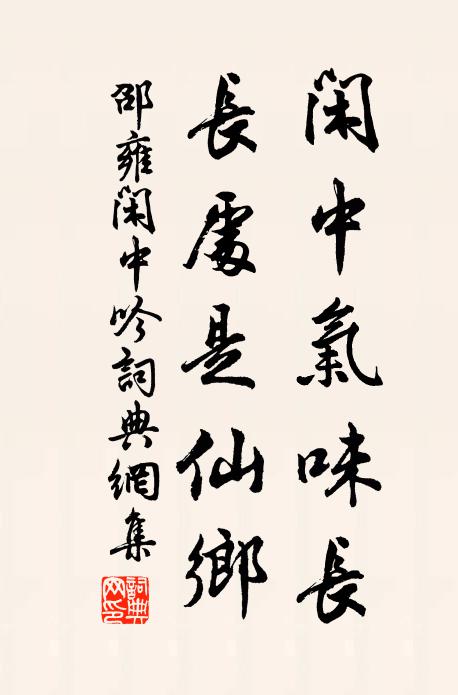 閑中氣味長
長處是仙鄉
邵雍閑中吟詞典網集
詞典网印